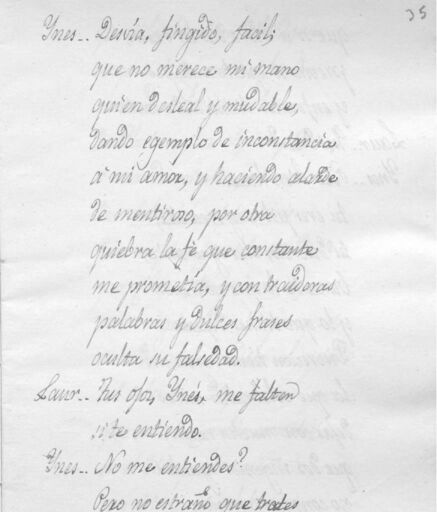 35
Ynes.. Desvía, fingido, facil;
que no merece mi mano
quien desleal y mudable,
dando egemplo de inconstancia
á mi amor, y haciendo alarde
de mentiroso, por otra
quiebra la fe que constante
me prometia, y con traidoras
palabras y dulces frases
oculta su falsedad.
Laur.. Tus ojos, Ynés, me falten
si te entiendo.
Ynes.. No me entiendes?
Pero no estraño que trates